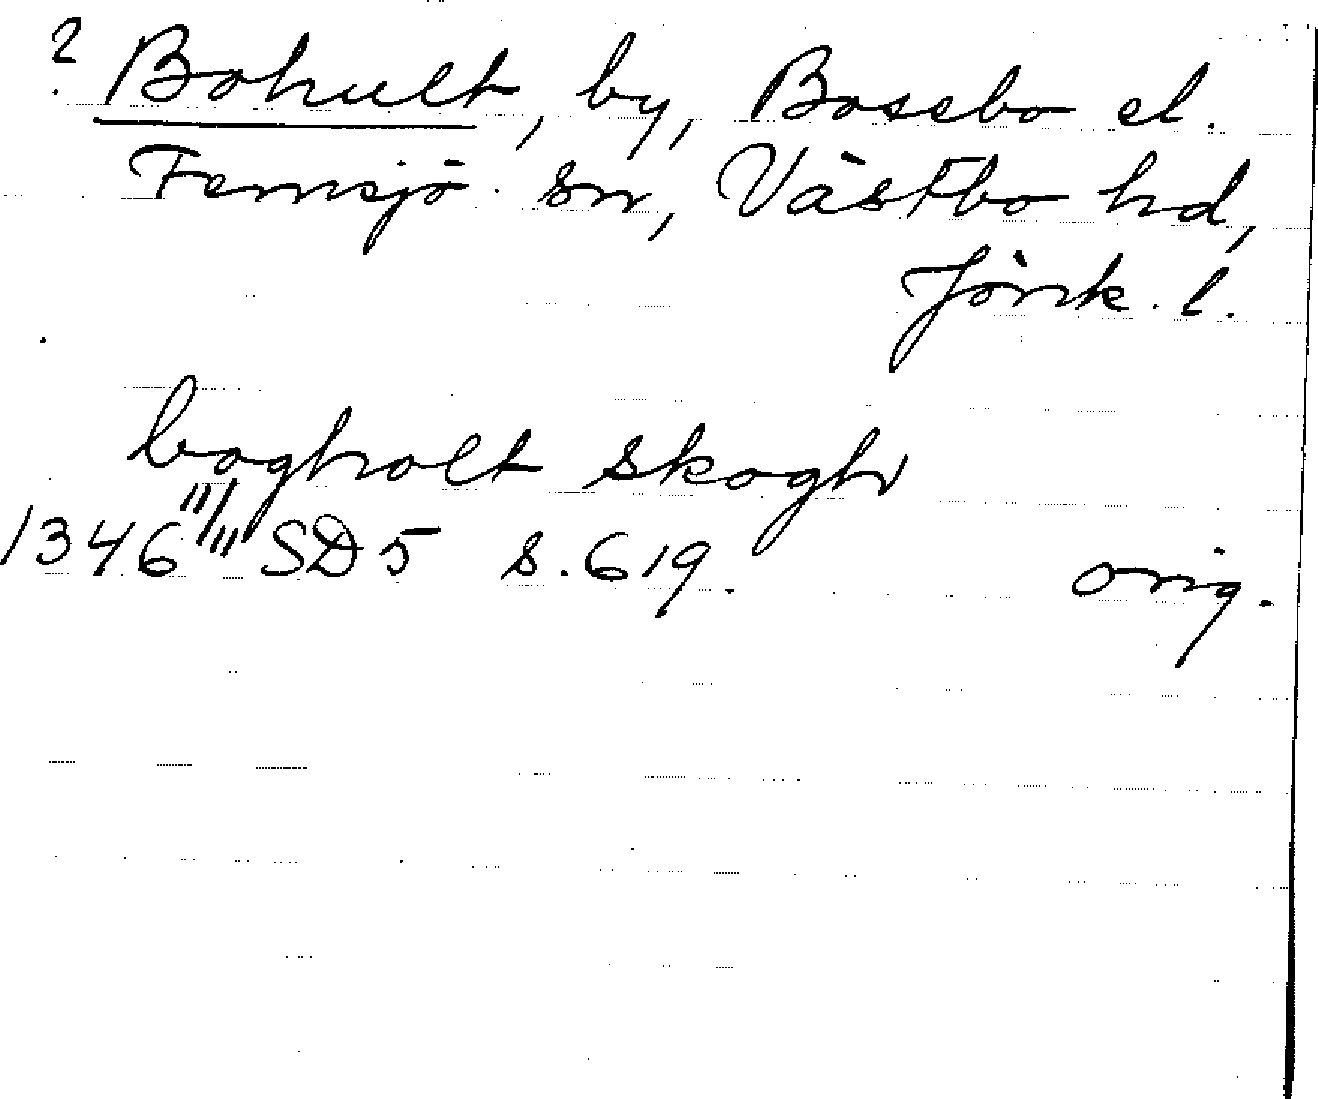 ? Bohult, by, Bosebo el.
Femsjö sn, Västbo hd,
Jönk. l.
bogholt skogh
1346 11/11 SD 5 s. 619. orig.